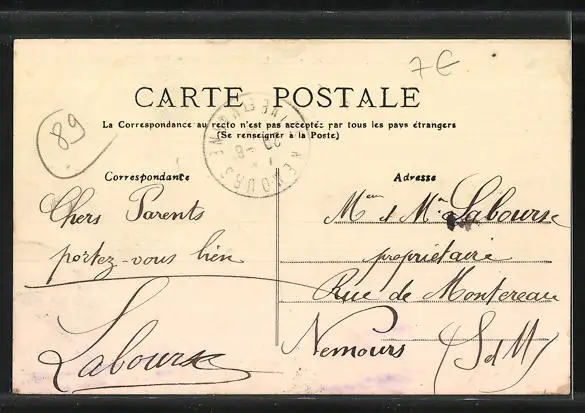 7€
CARTE POSTALE
La Correspondance au recto n'est pas acceptée par tous les pays étrangers
(Se renseigner à la Poste)
89
NEMOURS
Correspondante
Chers Parents
portez-vous bien
Labourse
Adresse
Labourse
propriétaire
Rue de Montereau
Nemours S d M